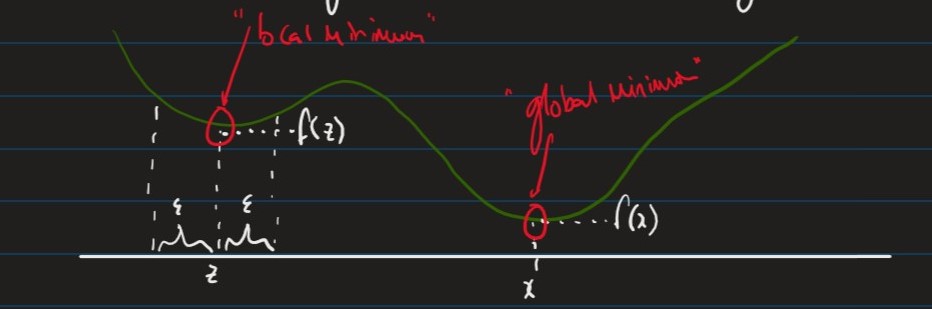 "local minimum"
"global minimum"
f(z)
ε ε
f(x)
z
x